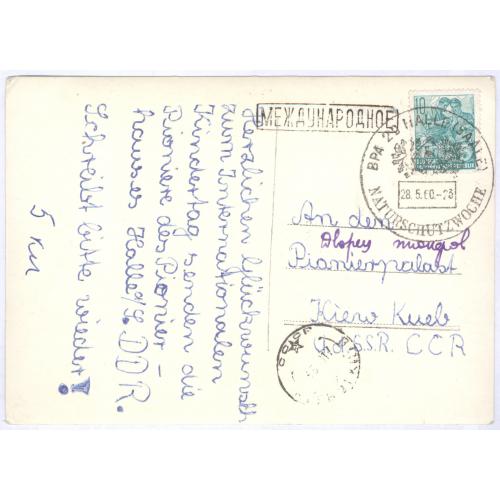 Herzlichen Glückwunsch
zum Internationalen
Kindertag senden die
Pioniere des Pionier-
hauses Halle/S. DDR.
Schreibt bitte wieder!
5 кл
МЕЖДУНАРОДНОЕ
10
BPA 29 HALLE (SAALE)
28.5.60.-23
NATURSCHUTZWOCHE
An den
Дворец пионеров
Pionierpalast
Kiew Киев
СССР